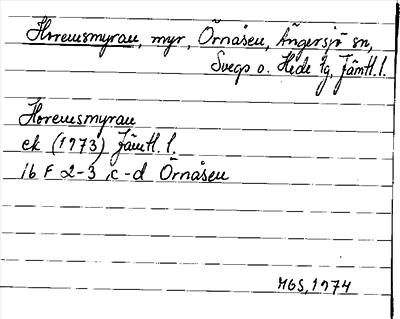 Horrmsmyran, myr, Örnåsen, Ängersjö sn,
Svegs o. Hede tg, Jämtl. l.
Horemsmyran
ek (1973) Jämtl. l.
16 F 2-3, c-d Örnåsen
MGS, 1974